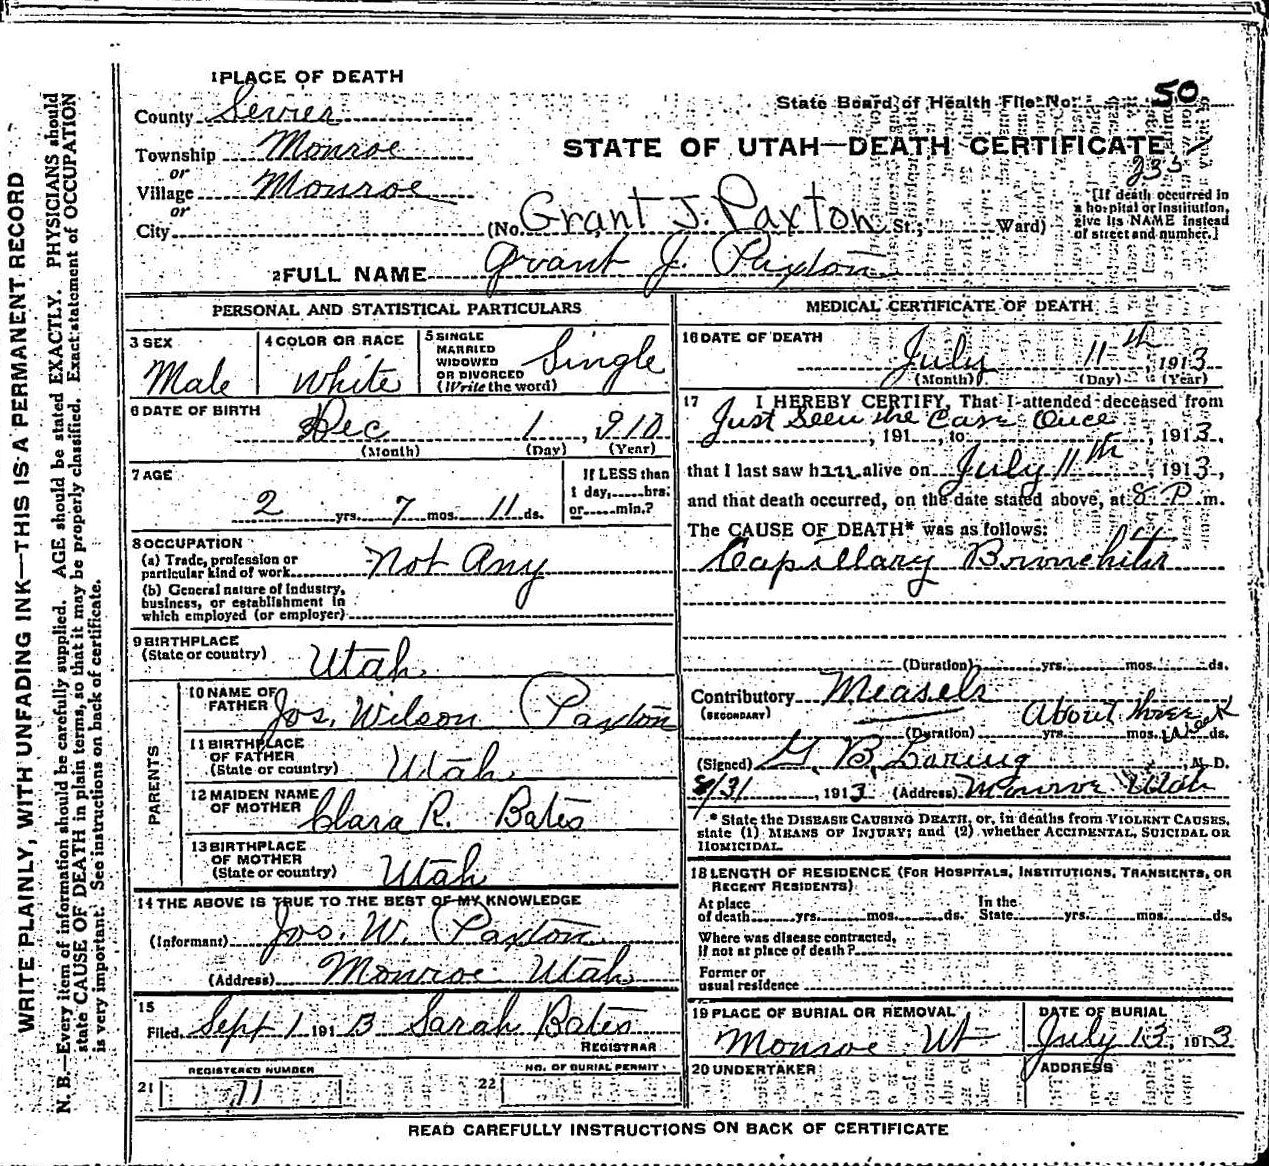 1 PLACE OF DEATH
County Sevier
Township Monroe
or
Village Monroe
or
City
State Board of Health File No. 50
STATE OF UTAH—DEATH CERTIFICATE
235
[If death occurred in
a hospital or institution,
give its NAME instead
of street and number.]
(No. Grant J. Paxton St.; Ward)
2 FULL NAME Grant J. Paxton
PERSONAL AND STATISTICAL PARTICULARS
3 SEX
Male
4 COLOR OR RACE
White
5 SINGLE
MARRIED
WIDOWED
OR DIVORCED
(Write the word)
Single
6 DATE OF BIRTH
Dec 1, 1910
(Month) (Day) (Year)
7 AGE
2 yrs. 7 mos. 11 ds.
If LESS than
1 day, hrs.
or min.?
8 OCCUPATION
(a) Trade, profession or
particular kind of work Not Any
(b) General nature of Industry,
business, or establishment in
which employed (or employer)
9 BIRTHPLACE
(State or country) Utah
PARENTS
10 NAME OF
FATHER Jos. Wilson Paxton
11 BIRTHPLACE
OF FATHER
(State or country) Utah
12 MAIDEN NAME
OF MOTHER Clara R. Bates
13 BIRTHPLACE
OF MOTHER
(State or country) Utah
14 THE ABOVE IS TRUE TO THE BEST OF MY KNOWLEDGE
(Informant) Jos. W. Paxton
(Address) Monroe Utah
15
Filed Sept 1 1913 Sarah Bates
REGISTRAR
REGISTERED NUMBER
21 71
NO. OF BURIAL PERMIT
22
MEDICAL CERTIFICATE OF DEATH
16 DATE OF DEATH
July 11th, 1913
(Month) (Day) (Year)
17 I HEREBY CERTIFY, That I attended deceased from
Just Seen the Case Once
, 191 , to , 1913,
that I last saw him alive on July 11th, 1913,
and that death occurred, on the date stated above, at 8 P m.
The CAUSE OF DEATH* was as follows:
Capillary Bronchitis
(Duration) yrs. mos. ds.
Contributory Measels
(SECONDARY)
About three week
(Duration) yrs. mos. ds.
(Signed) G. B. Loring, M. D.
8/31, 1913 (Address) Monroe Utah
* State the DISEASE CAUSING DEATH, or, in deaths from VIOLENT CAUSES,
state (1) MEANS OF INJURY; and (2) whether ACCIDENTAL, SUICIDAL OR
HOMICIDAL.
18 LENGTH OF RESIDENCE (FOR HOSPITALS, INSTITUTIONS, TRANSIENTS, OR
RECENT RESIDENTS)
At place
of death yrs. mos. ds.
In the
State yrs. mos. ds.
Where was disease contracted,
if not at place of death?
Former or
usual residence
19 PLACE OF BURIAL OR REMOVAL
Monroe Ut
DATE OF BURIAL
July 13, 1913
20 UNDERTAKER
ADDRESS
READ CAREFULLY INSTRUCTIONS ON BACK OF CERTIFICATE
WRITE PLAINLY, WITH UNFADING INK—THIS IS A PERMANENT RECORD
N. B.—Every item of information should be carefully supplied. AGE should be stated EXACTLY. PHYSICIANS should
state CAUSE OF DEATH in plain terms, so that it may be properly classified. Exact statement of OCCUPATION
is very important. See instructions on back of certificate.